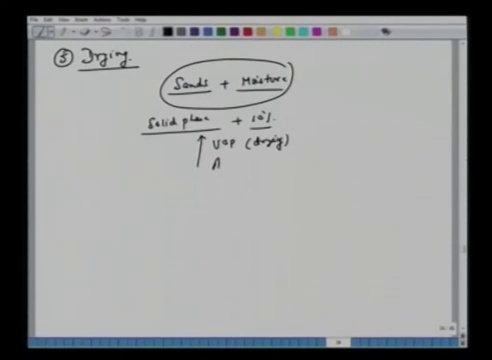 File Edit View Insert Actions Tools Help
⑤ Drying.
Sands + Moisture
Solid phase + 10%.
↑ VOP (drying)
A